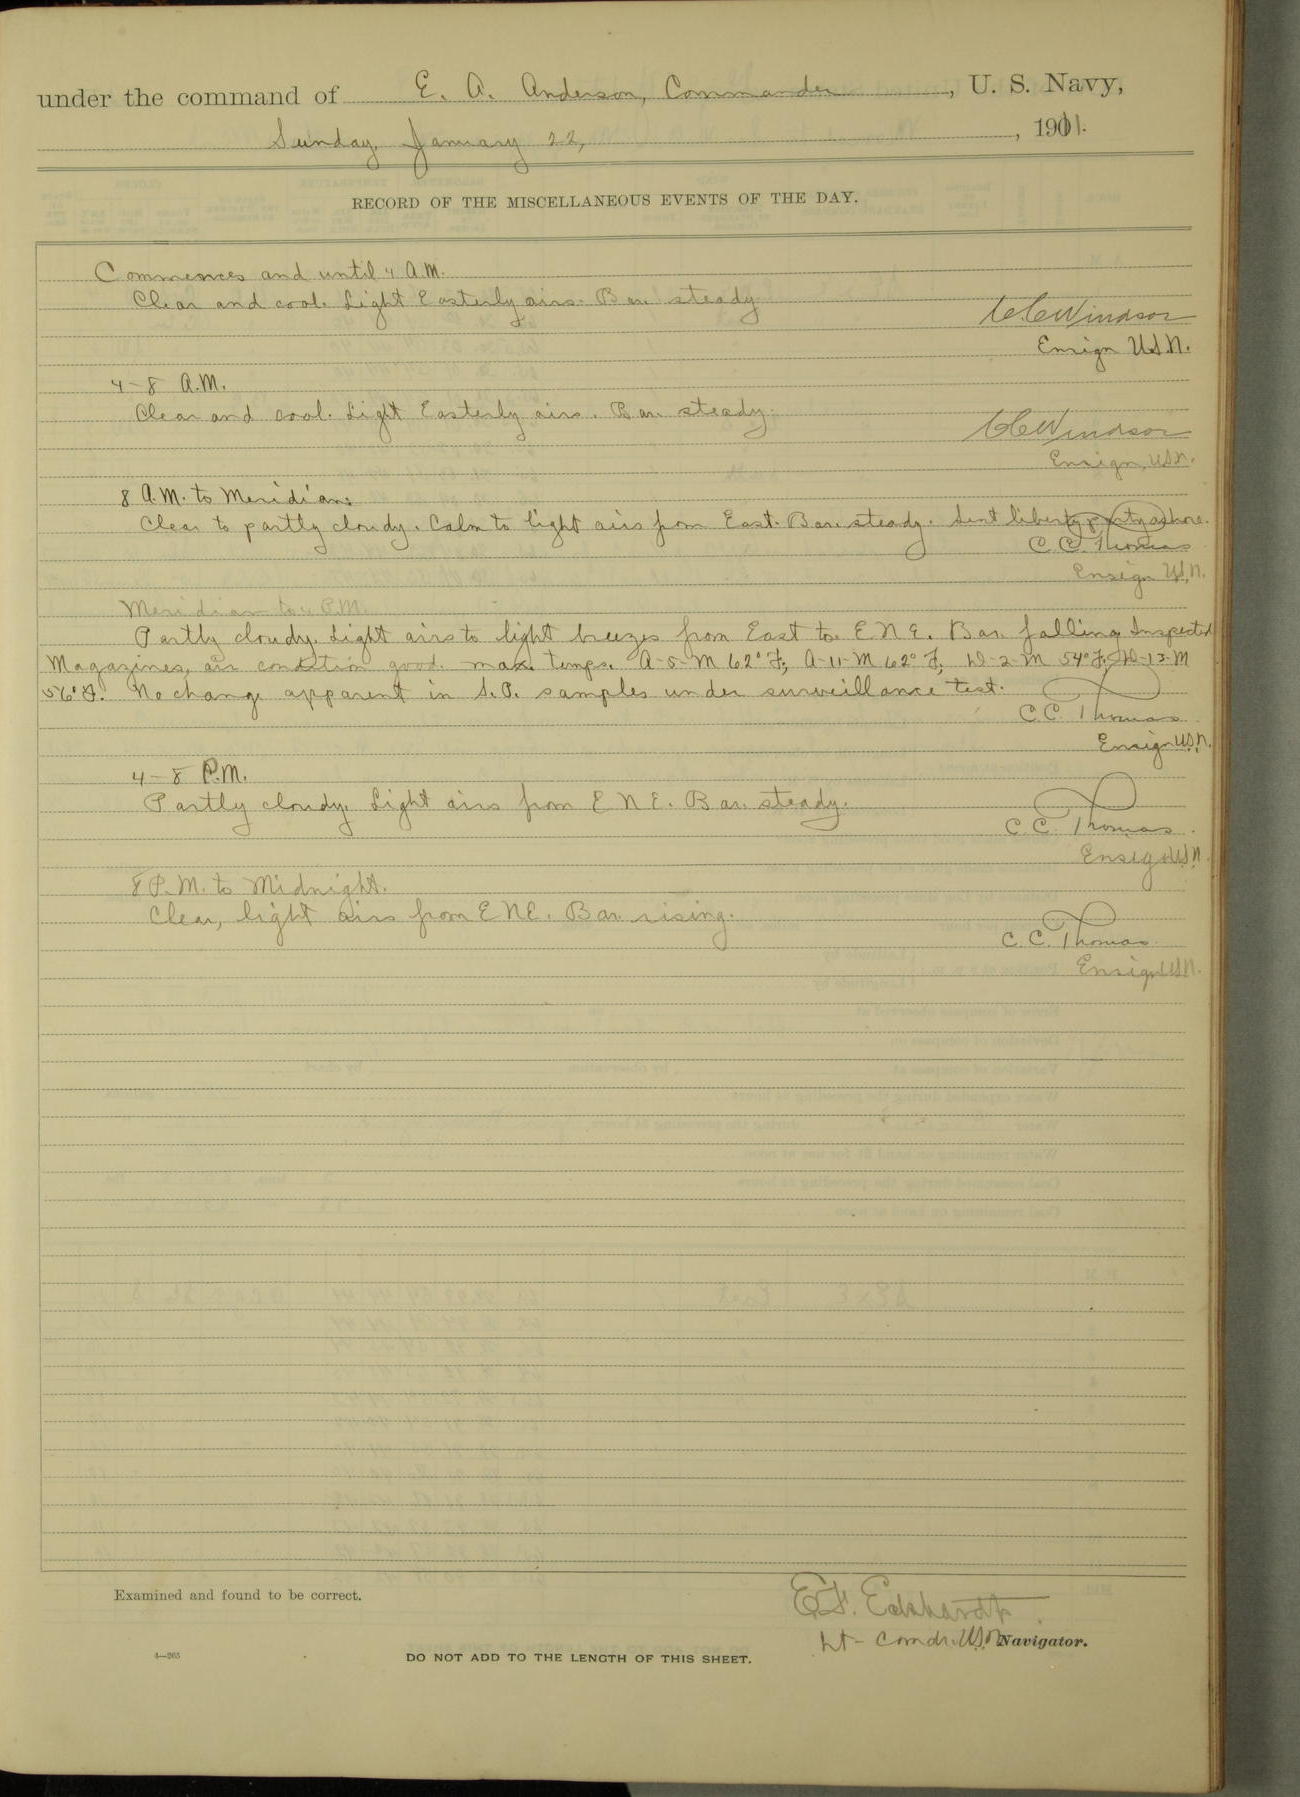 under the command of E. A. Anderson, Commander, U. S. Navy,
Sunday, January 22, 1911.
RECORD OF THE MISCELLANEOUS EVENTS OF THE DAY.
Commences and until 4 A.M.
Clear and cool. Light Easterly airs. Bar. steady
C C Windsor
Ensign U.S.N.
4-8 A.M.
Clear and cool. Light Easterly airs. Bar. steady.
C C Windsor
Ensign, U.S.N.
8 A.M. to Meridian:
Clear to partly cloudy. Calm to light airs from East. Bar. steady. Sent liberty party ashore.
C. C. Thomas
Ensign U.S.N.
Meridian to 4 P.M.
Partly cloudy. Light airs to light breezes from East to E N E. Bar. falling. Inspected
Magazines, air condition good. max. temps. A-5-M 62° F; A-11-M 62° F; D-2-M 54° F; D-13-M
56° F. No change apparent in S.P. samples under surveillance test.
C. C. Thomas
Ensign U.S.N.
4-8 P.M.
Partly cloudy. Light airs from E N E. Bar. steady.
C. C. Thomas
Ensign U.S.N.
8 P.M. to Midnight.
Clear, light airs from E N E. Bar. rising.
C. C. Thomas
Ensign U.S.N.
Examined and found to be correct.
E. F. Eckhardt
Lt-Comdr. U.S.N. Navigator.
4—265
DO NOT ADD TO THE LENGTH OF THIS SHEET.